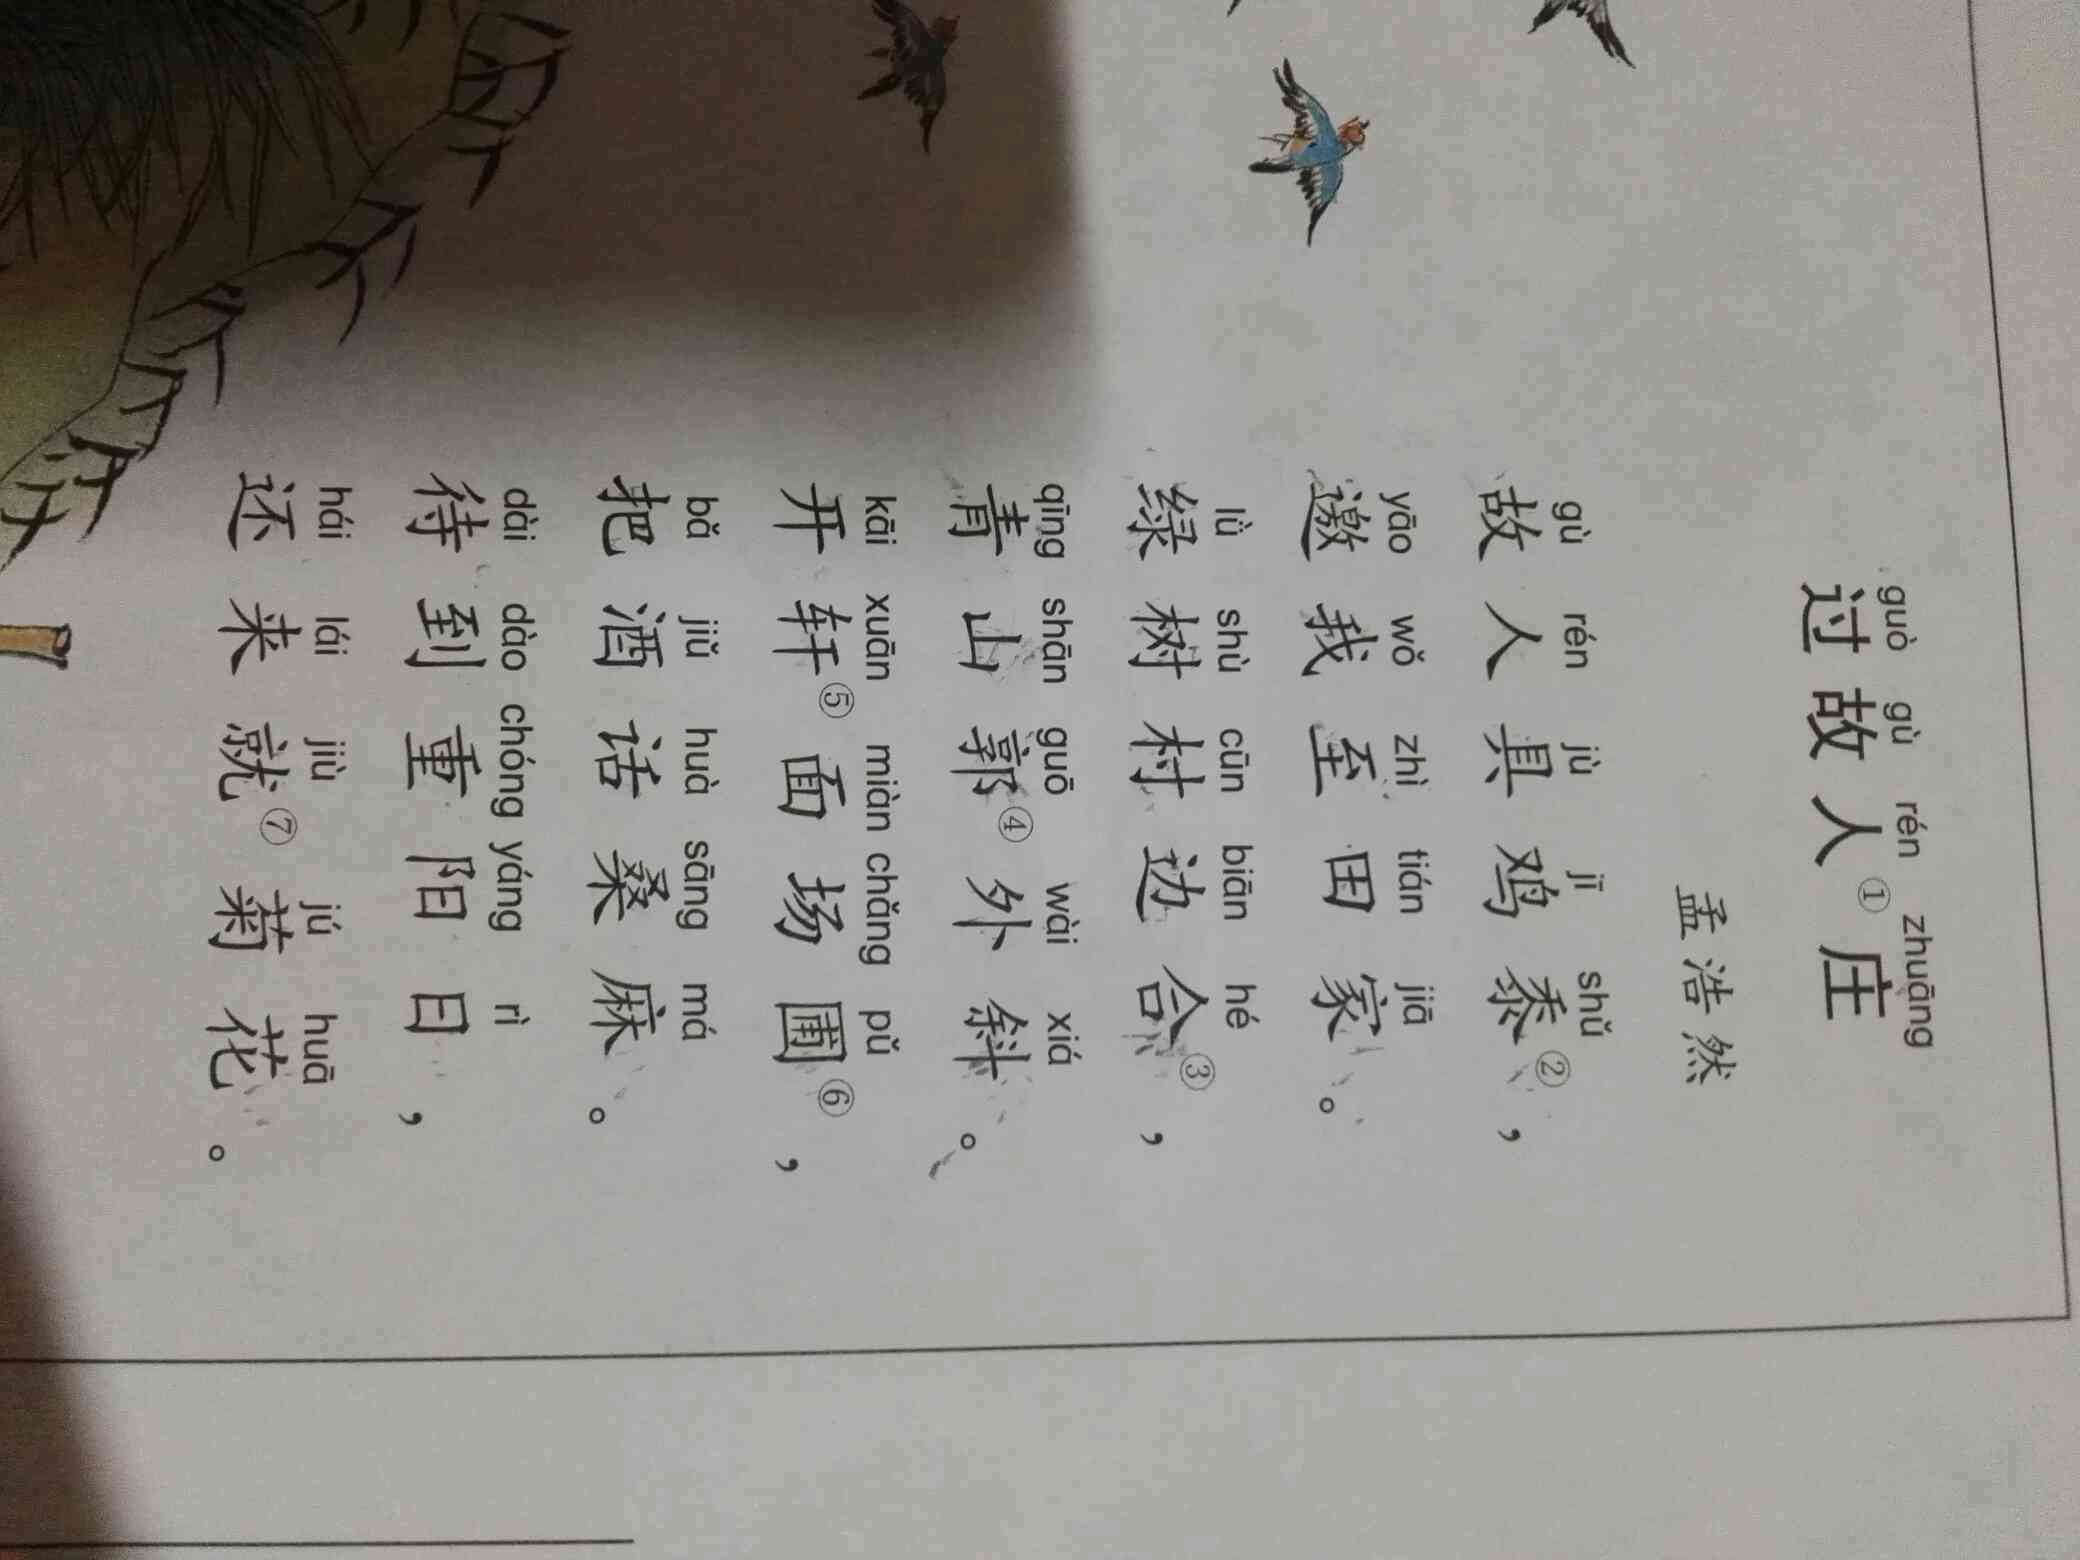 guò gù rén zhuāng
过故人①庄
孟浩然
gù rén jù jī shǔ
故人具鸡黍②，
yāo wǒ zhì tián jiā
邀我至田家。
lǜ shù cūn biān hé
绿树村边合③，
qīng shān guō wài xiá
青山郭④外斜。
kāi xuān miàn chǎng pǔ
开轩⑤面场圃⑥，
bǎ jiǔ huà sāng má
把酒话桑麻。
dài dào chóng yáng rì
待到重阳日，
hái lái jiù jú huā
还来就⑦菊花。